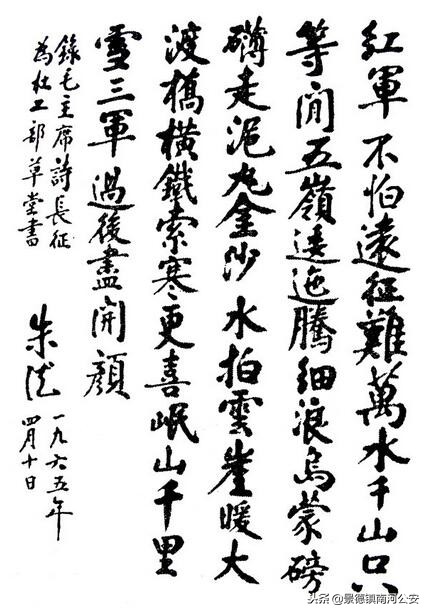 紅軍不怕遠征難萬水千山只
等閒五嶺逶迤騰細浪烏蒙磅
礴走泥丸金沙水拍雲崖暖大
渡橋橫鐵索寒更喜岷山千里
雪三軍過後盡開顏
錄毛主席詩長征
為杜工部草堂書
朱德
一九六五年
四月十日
头条 @景德镇南河公安